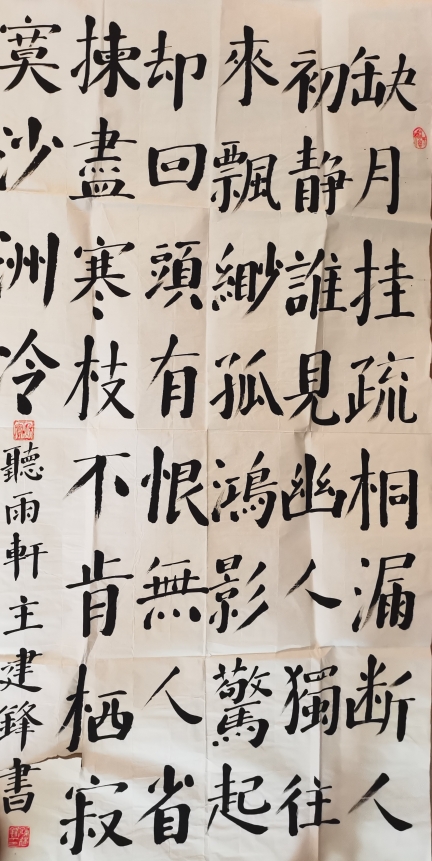 缺月挂疏桐漏断人
初静誰見幽人獨往
來飄緲孤鴻影驚起
却回頭有恨無人省
揀盡寒枝不肯栖寂
寞沙洲冷
聽雨軒主建鋒書